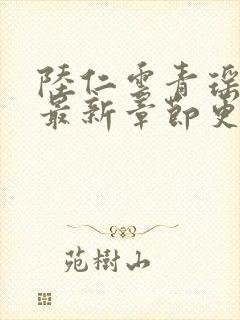 陸仁雲青瑶
最新章節更
苑樹山